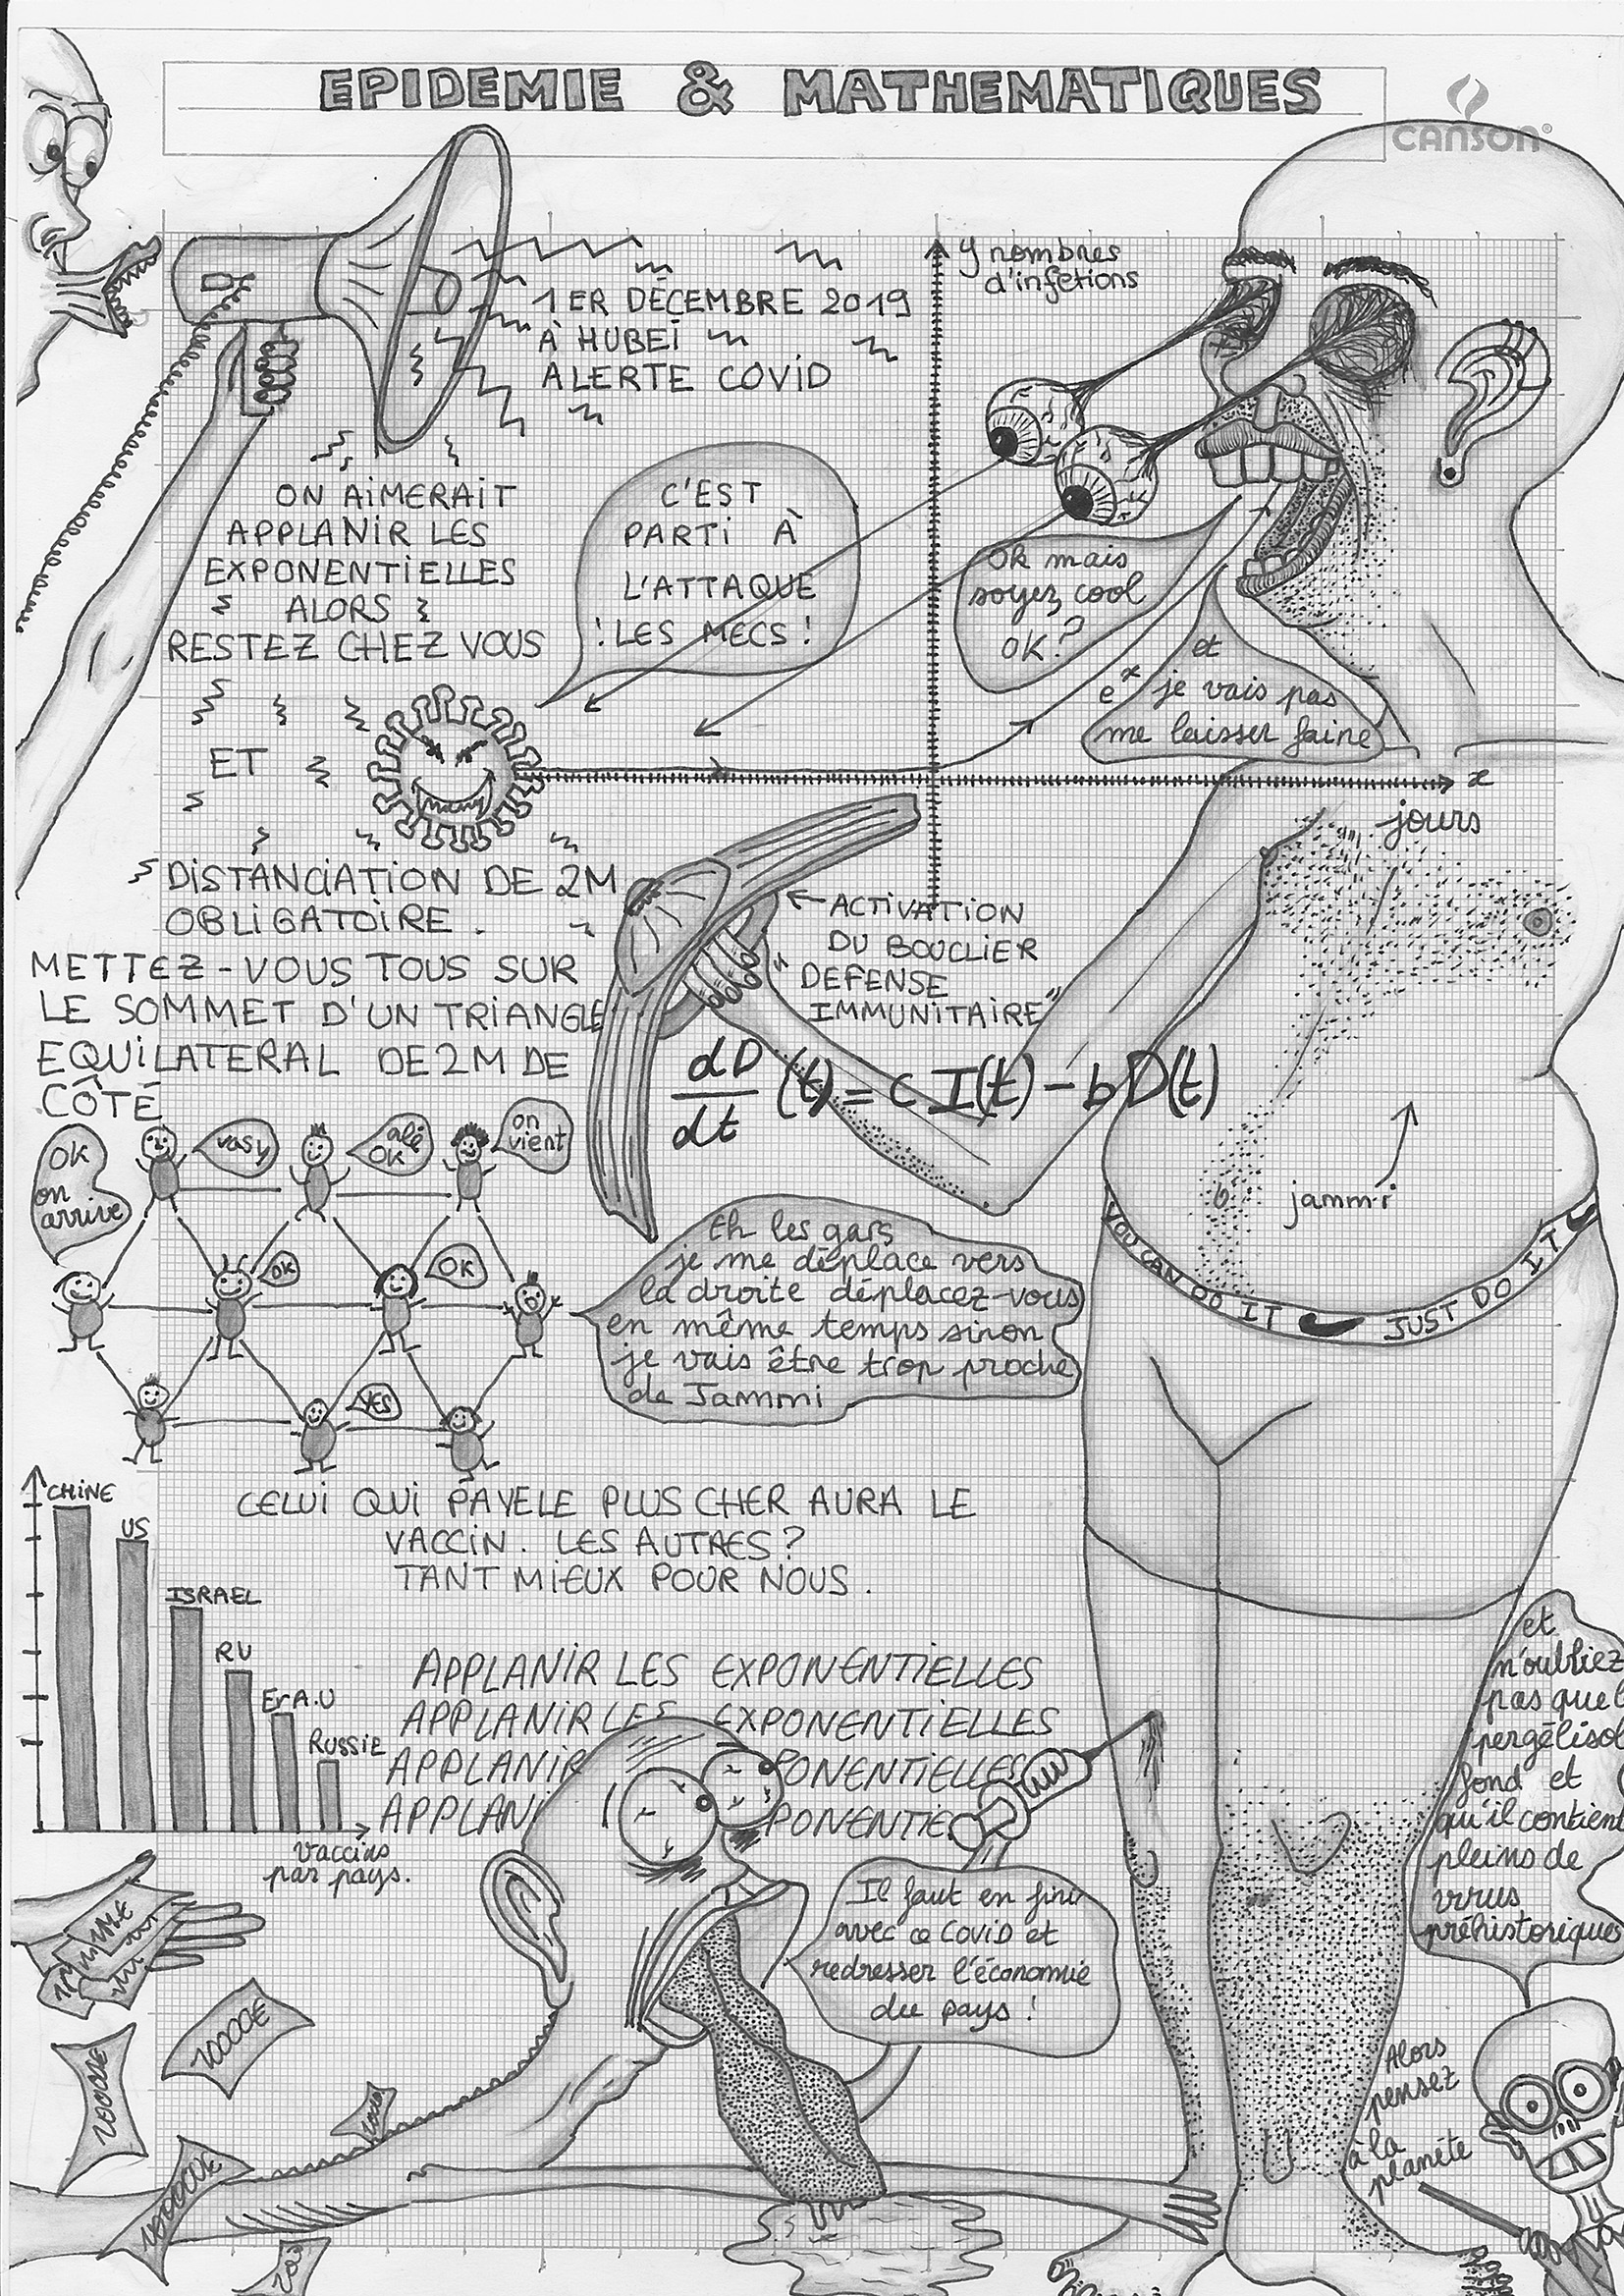 EPIDEMIE & MATHEMATIQUES
CANSON®
1ER DÉCEMBRE 2019
À HUBEÏ
ALERTE COVID
y nombres
d'infetions
ON AIMERAIT
APPLANIR LES
EXPONENTIELLES
ALORS
RESTEZ CHEZ VOUS
C'EST
PARTI À
L'ATTAQUE
! LES MECS !
Ok mais
soyez cool
OK?
et
je vais pas
me laisser faire
e^x
ET
x
jours
DISTANCIATION DE 2M
OBLIGATOIRE.
METTEZ-VOUS TOUS SUR
LE SOMMET D'UN TRIANGLE
EQUILATERAL DE 2M DE
CÔTÉ
← ACTIVATION
DU BOUCLIER
"DEFENSE
IMMUNITAIRE"
dD/dt (t) = c I(t) - b D(t)
OK
on
arrive
vasy
alé
OK
on
vient
OK
OK
YES
jammi
Eh les gars
je me déplace vers
la droite déplacez-vous
en même temps sinon
je vais être trop proche
de Jammi
YOU CAN DO IT JUST DO IT
CHINE
US
ISRAEL
RU
E.A.U
RUSSIE
vaccins
par pays.
CELUI QUI PAYELE PLUS CHER AURA LE
VACCIN. LES AUTRES?
TANT MIEUX POUR NOUS.
APPLANIR LES EXPONENTIELLES
APPLANIR LES EXPONENTIELLES
APPLANIR PONENTIELLES
APPLANI PONENTIE
Il faut en finir
avec ce COVID et
redresser l'économie
du pays !
et
n'oubliez
pas que l
pergélisol
fond et
qu'il contient
pleins de
virus
préhistoriques
Alors
pensez
à la
planète